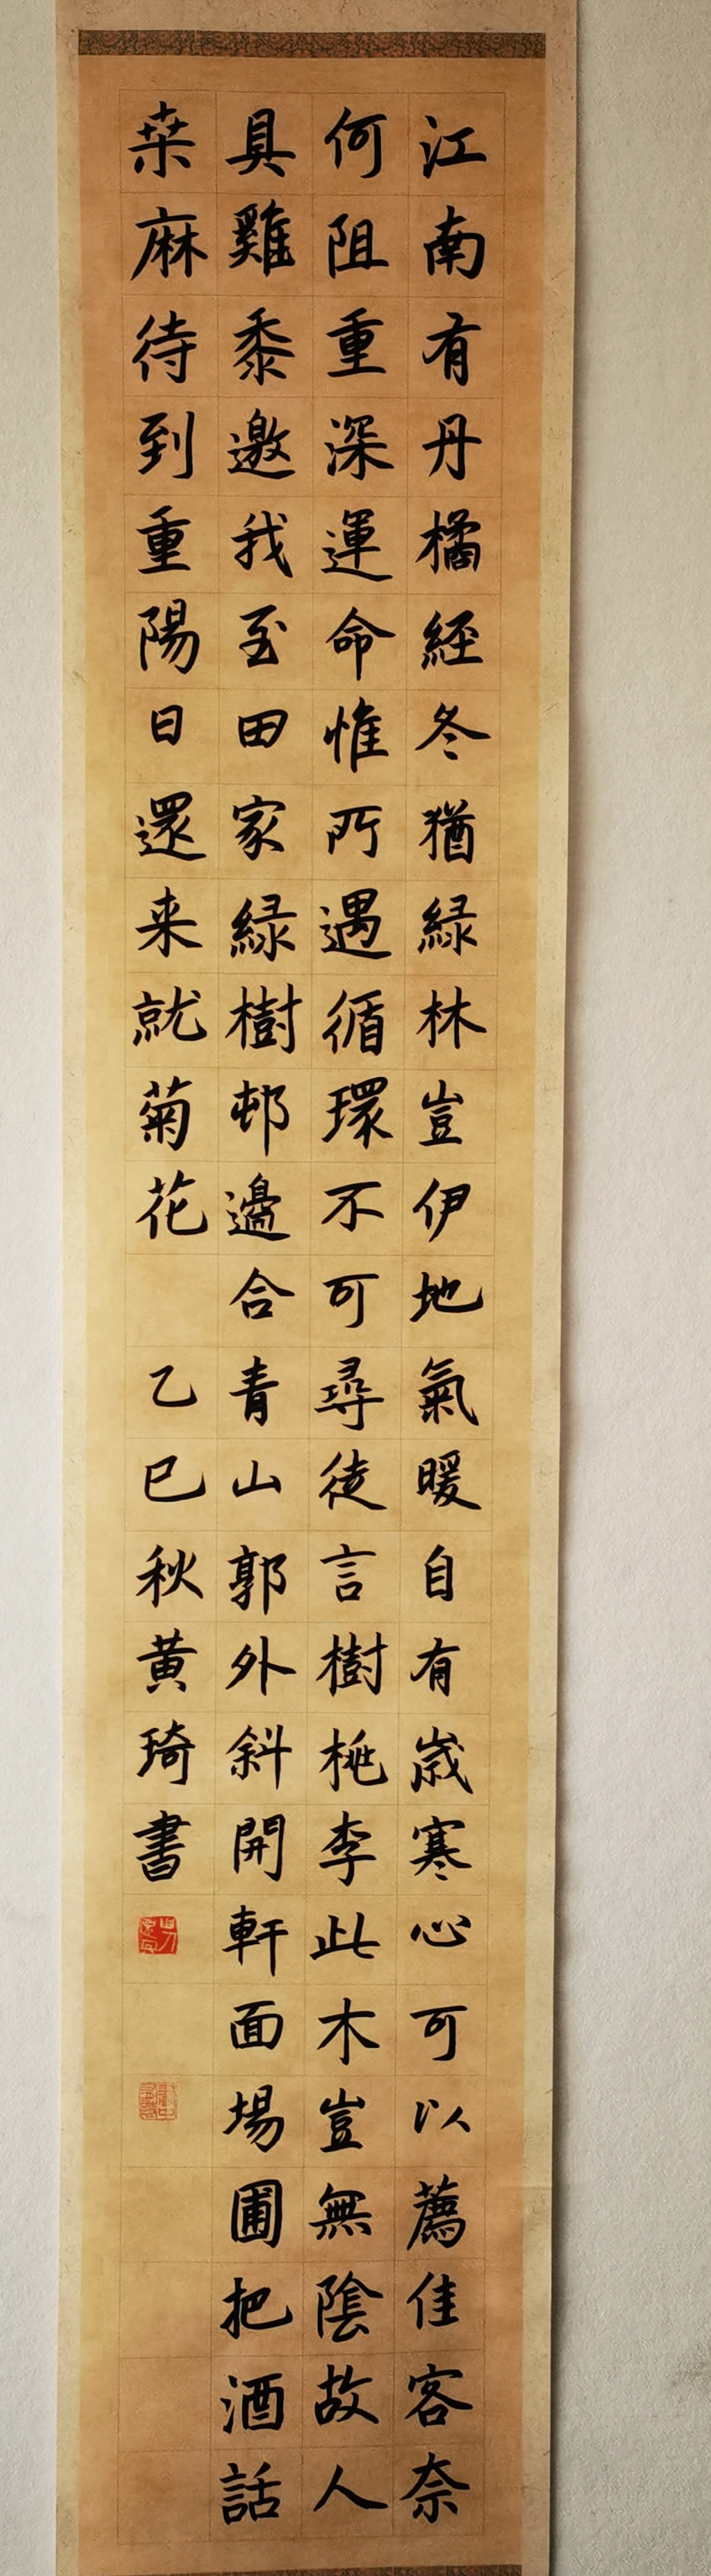 江南有丹橘經冬猶緑林豈伊地氣暖自有歲寒心可以薦佳客奈
何阻重深運命惟所遇循環不可尋徒言樹桃李此木豈無陰故人
具雞黍邀我至田家緑樹邨邊合青山郭外斜開軒面場圃把酒話
桒麻待到重陽日還来就菊花
乙巳秋黄琦書